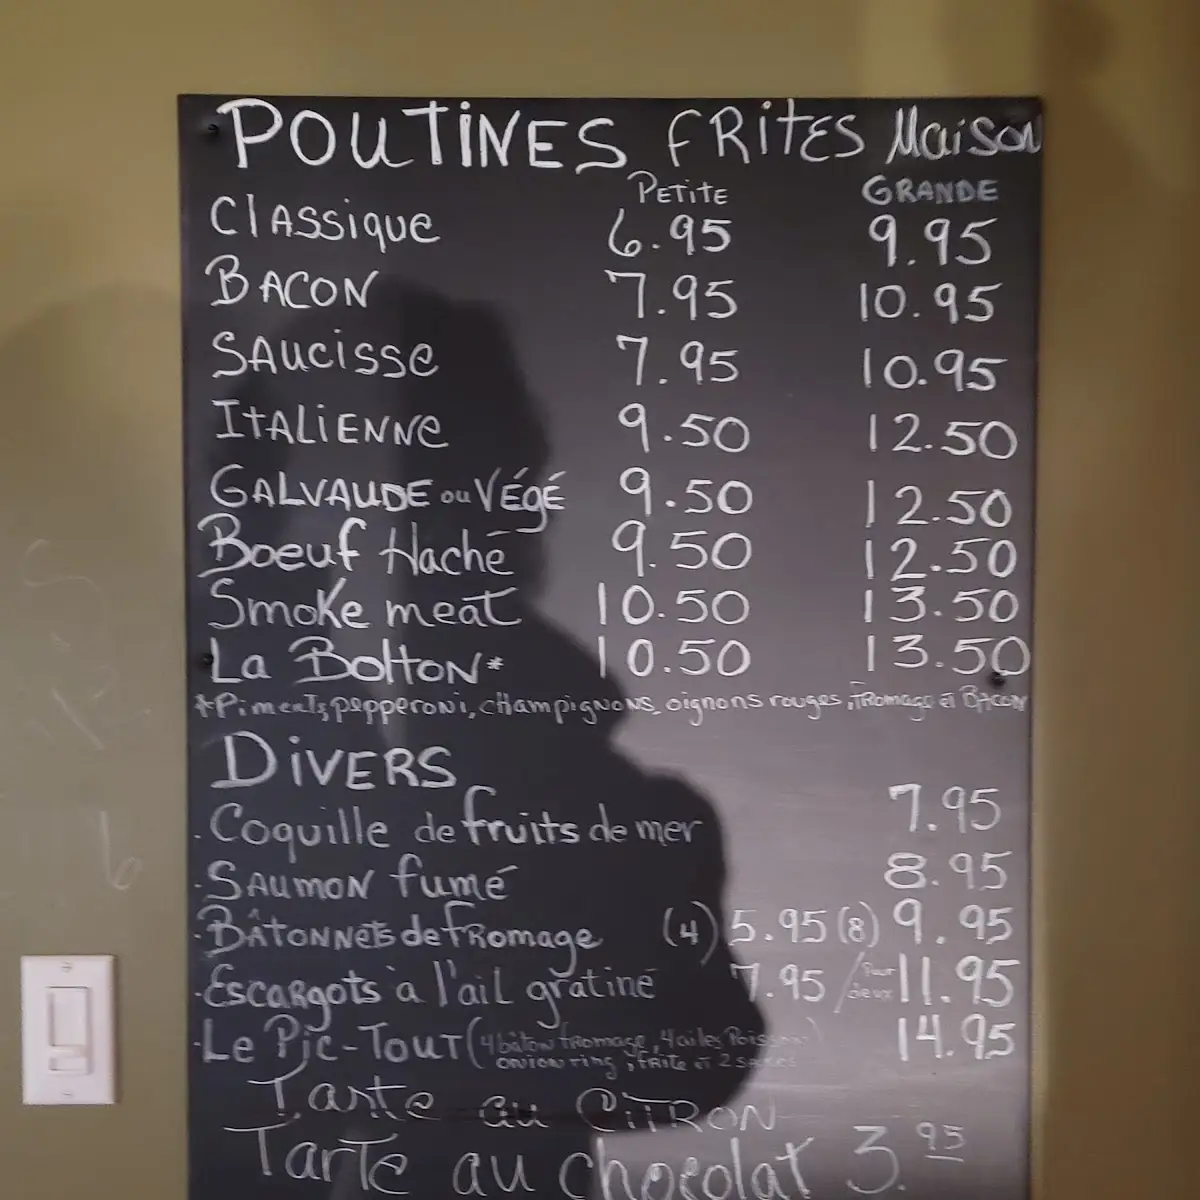 POUTINES FRITES Maison
PETITE GRANDE
Classique 6.95 9.95
BACON 7.95 10.95
SAUCISSE 7.95 10.95
ITALIENNE 9.50 12.50
GALVAUDE ou VÉGÉ 9.50 12.50
Boeuf Haché 9.50 12.50
Smoke meat 10.50 13.50
La BOLTON* 10.50 13.50
*Piments, pepperoni, champignons, oignons rouges, Fromage et BACON
DIVERS
- Coquille de fruits de mer 7.95
- SAUMON fumé 8.95
- BÂTONNETS de FROMAGE (4) 5.95 (8) 9.95
- Escargots à l'ail gratiné 7.95 / Pour deux 11.95
- Le Pic-Tout (4 bâton fromage, 4 ailes Poisson) 14.95
onion ring, frite et 2 sauces
Tarte au CITRON
Tarte au chocolat 3.95